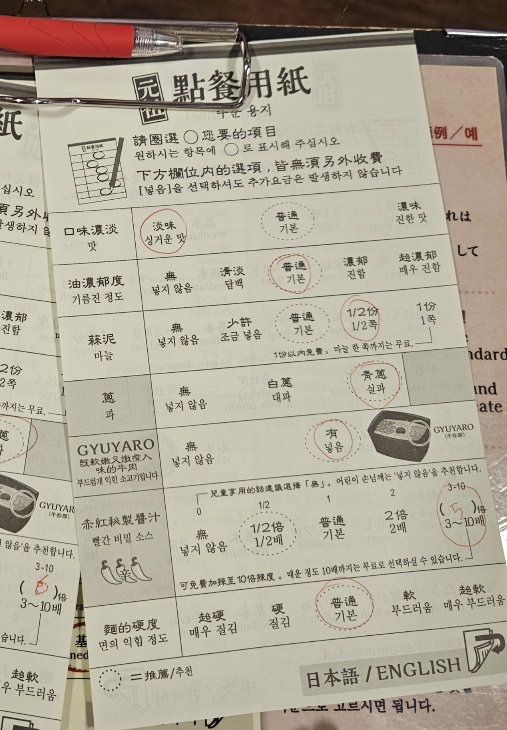 元祖 點餐用紙
주문 용지
請圈選○您要的項目
원하시는 항목에 ○로 표시해 주십시오
下方欄位內的選項,皆無須另外收費
[넣음]을 선택하셔도 추가요금은 발생하지 않습니다
口味濃淡 淡味 普通 濃味
맛 싱거운 맛 기본 진한 맛
油濃郁度 無 清淡 普通 濃郁 超濃郁
기름진 정도 넣지 않음 담백 기본 진함 매우 진함
蒜泥 無 少許 普通 1/2份 1份
마늘 넣지 않음 조금 넣음 기본 1/2쪽 1쪽
1份以內免費。마늘 한 쪽까지는 무료.
蔥 無 白蔥 青蔥
파 넣지 않음 대파 실파
GYUYARO 無 有 GYUYARO
既軟嫩又燉煮入味的牛肉
부드럽게 익힌 소고기입니다 넣지 않음 넣음
兒童享用的話建議選擇「無」。어린이 손님께는 '넣지 않음'을 추천합니다.
0 1/2 1 2 3-10
赤紅秘製醬汁 無 1/2倍 普通 2倍 ( 5 )倍
빨간 비밀 소스 넣지 않음 1/2배 기본 2배 3~10배
可免費加辣至10倍辣度。매운 정도 10배까지는 무료로 선택하실 수 있습니다.
麵的硬度 超硬 硬 普通 軟 超軟
면의 익힘 정도 매우 질김 질김 기본 부드러움 매우 부드러움
=推薦/추천
日本語/ENGLISH
例/예
れは
して